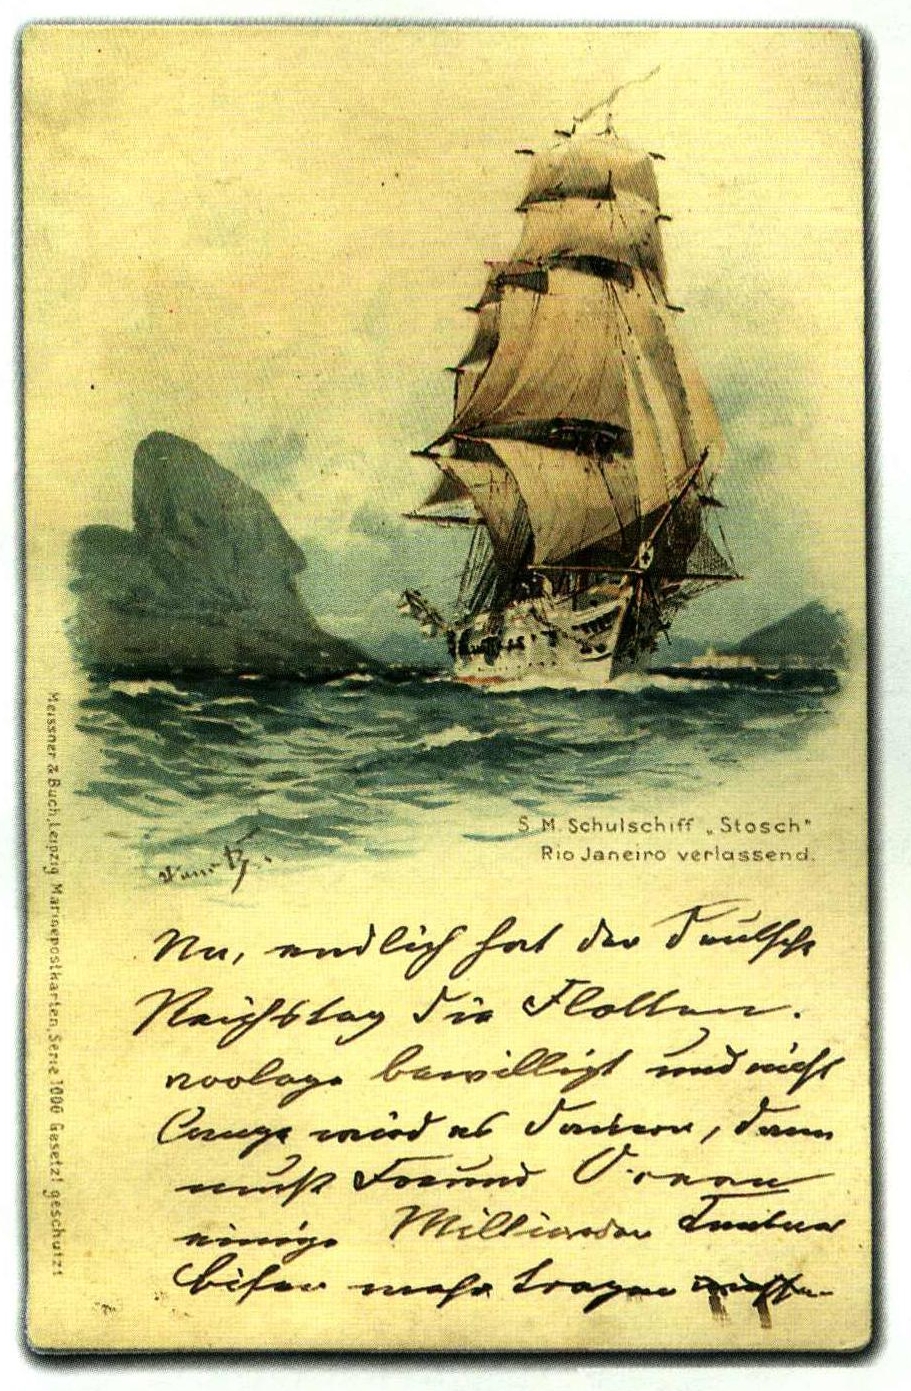 S. M. Schulschiff „Stosch"
Rio Janeiro verlassend.
Meissner & Buch, Leipzig Marinepostkarten, Serie 1006 Gesetzl geschützt
Nu, endlich hat der Deutsche
Reichstag die Flotten.
vorlage bewilligt und nicht
lange wird es dauern, dann
muß Freund
einige Milliarden
bisher mehr tragen